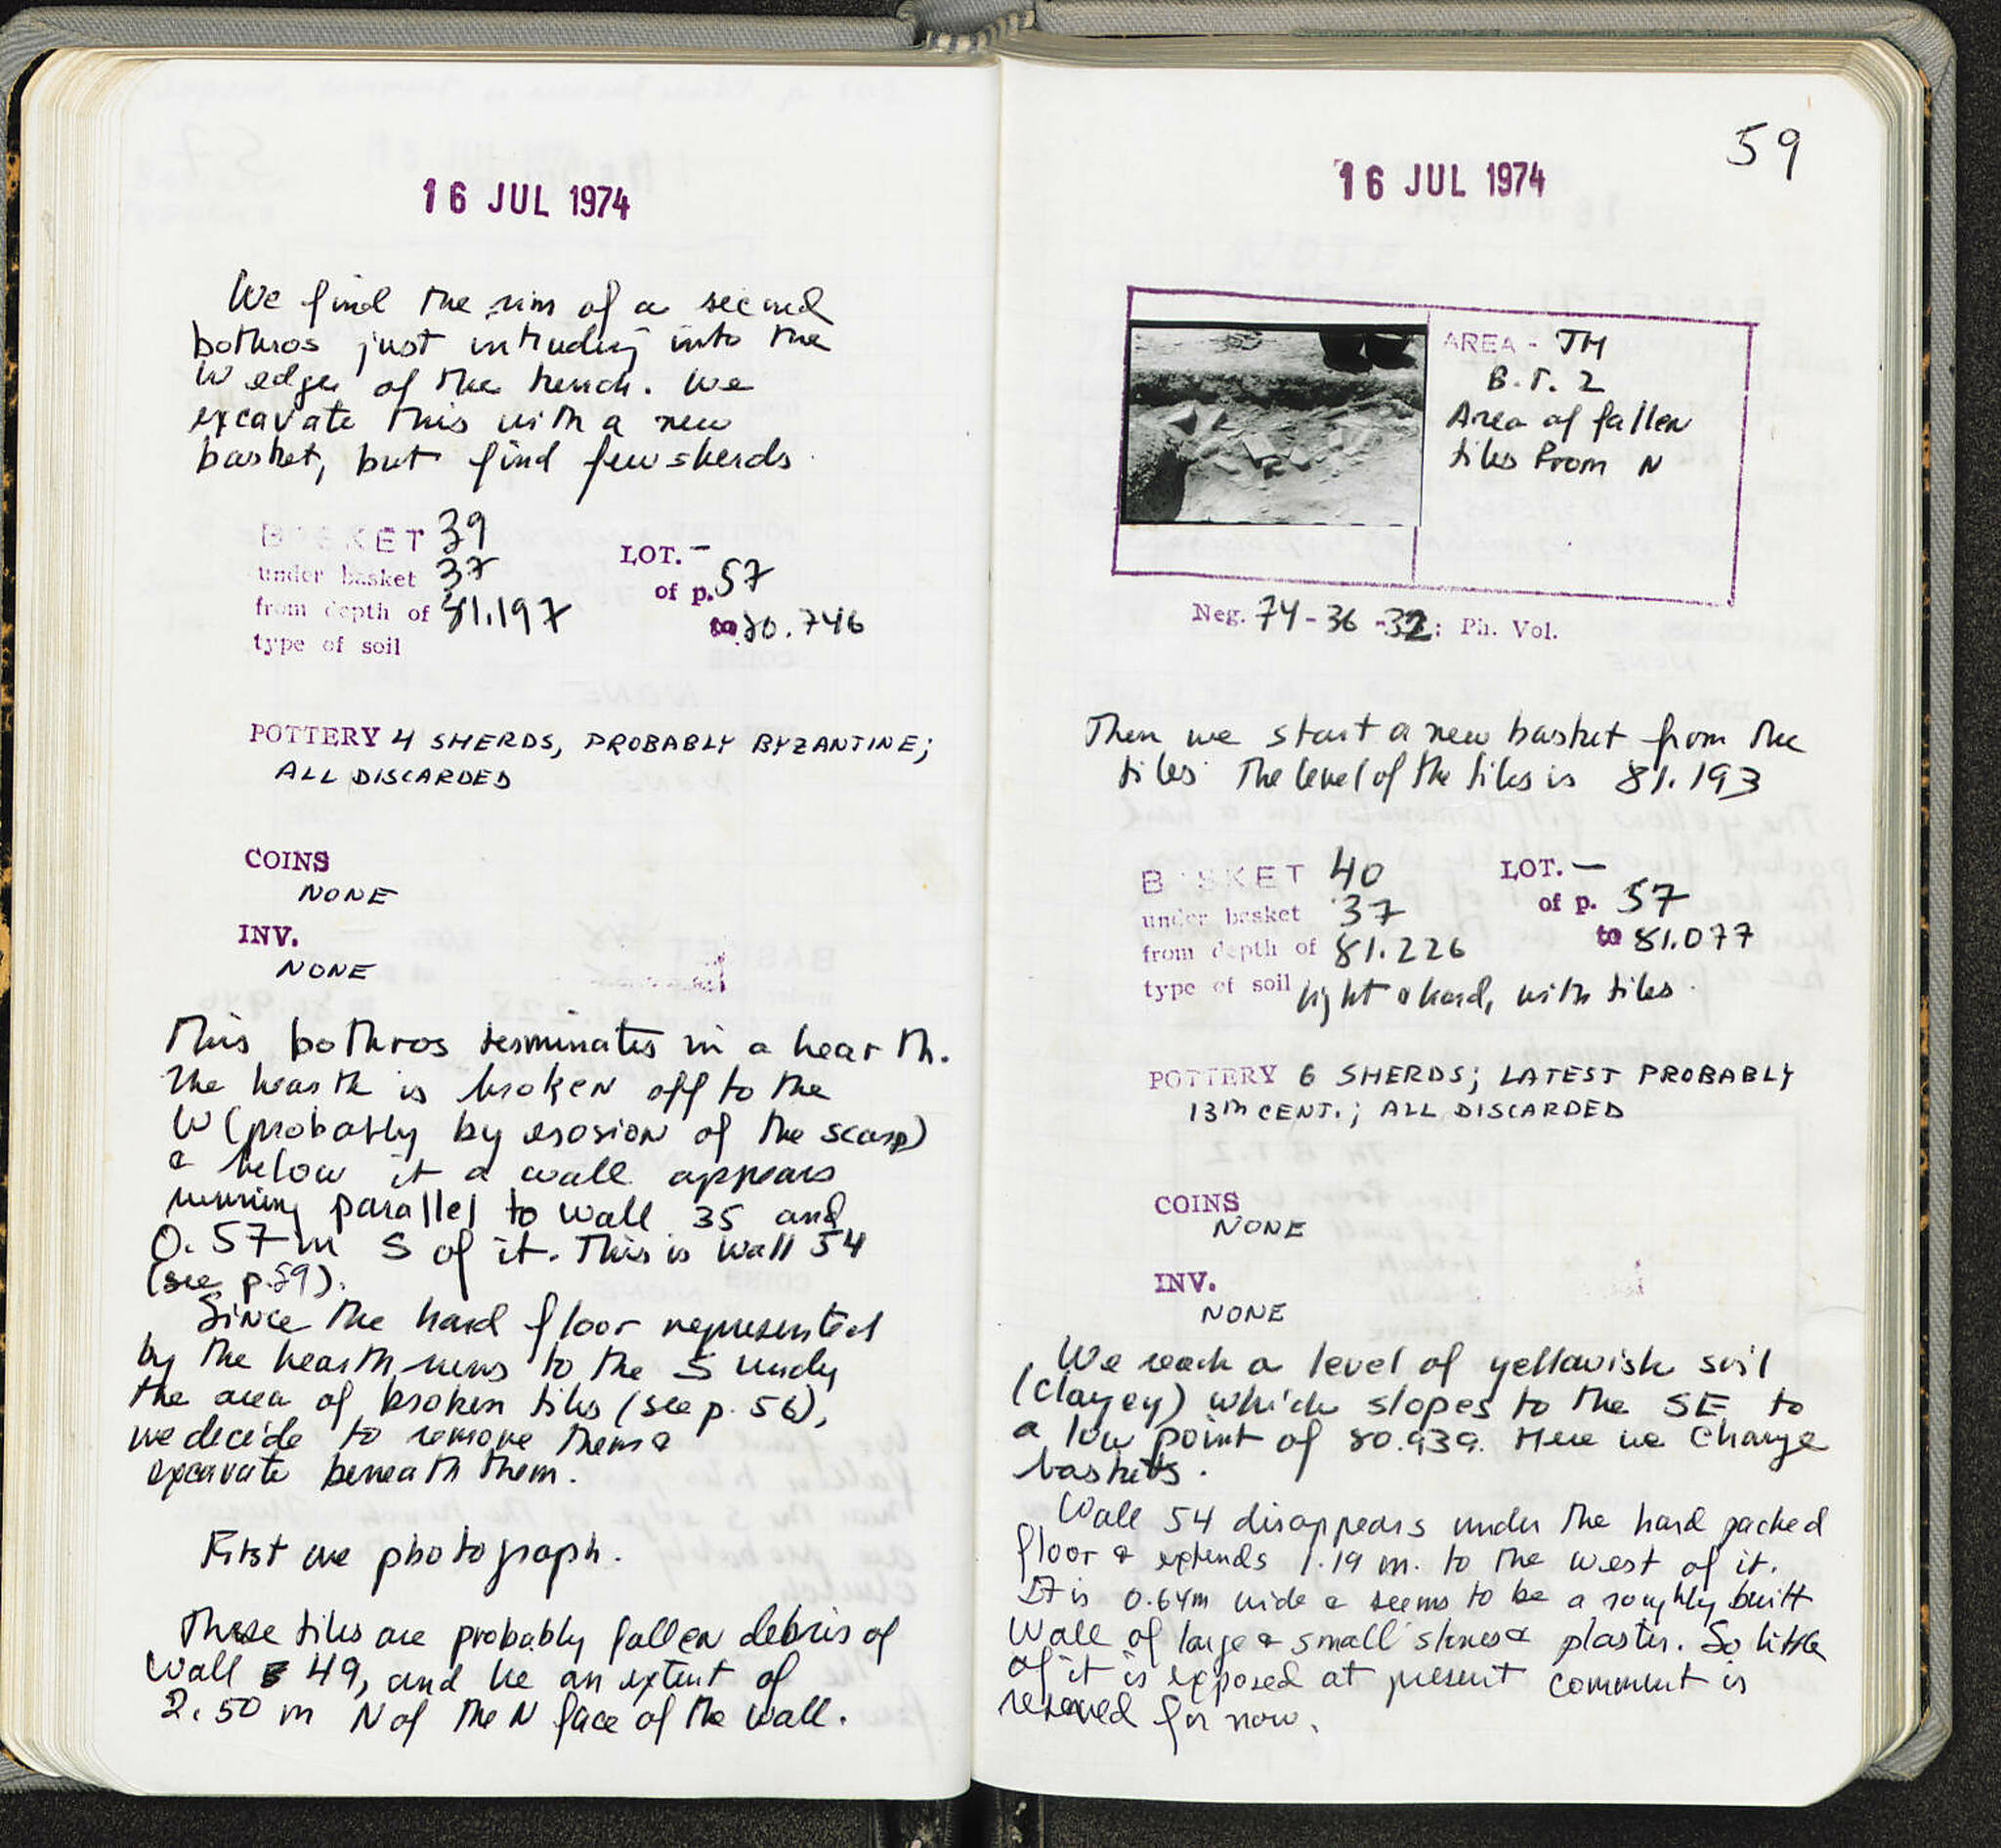 16 JUL 1974
We find the rim of a second
bothros just intruding into the
W edge of the trench. We
excavate this with a new
basket, but find few sherds.
BASKET 39 LOT. -
under basket 37 of p. 57
from depth of 81.197 to 80.746
type of soil
POTTERY 4 SHERDS, PROBABLY BYZANTINE;
ALL DISCARDED
COINS
NONE
INV.
NONE
This bothros terminates in a hearth.
The hearth is broken off to the
W (probably by erosion of the scarp)
& below it a wall appears
running parallel to wall 35 and
0.57 m S of it. This is wall 54
(see p. 59).
Since the hard floor represented
by the hearth runs to the S under
the area of broken tiles (see p. 56),
we decide to remove them &
excavate beneath them.
First we photograph.
These tiles are probably fallen debris of
wall 49, and lie an extent of
2.50 m N of the N face of the wall.
59
16 JUL 1974
AREA - TH
B.T. 2
Area of fallen
tiles from N
Neg. 74-36-32: Ph. Vol.
Then we start a new basket from the
tiles. The level of the tiles is 81.193
BASKET 40 LOT. —
under basket 37 of p. 57
from depth of 81.226 to 81.077
type of soil light & hard, with tiles.
POTTERY 6 SHERDS; LATEST PROBABLY
13th CENT.; ALL DISCARDED
COINS
NONE
INV.
NONE
We reach a level of yellowish soil
(clayey) which slopes to the SE to
a low point of 80.939. Here we change
baskets.
Wall 54 disappears under the hard packed
floor & extends 1.19 m. to the west of it.
It is 0.64m wide & seems to be a roughly built
wall of large & small stones & plaster. So little
of it is exposed at present comment is
reserved for now.